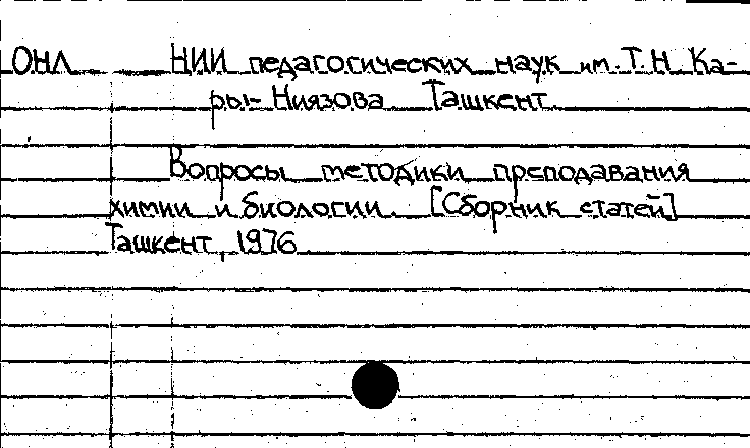 ОНЛ НИИ педагогических наук им. Т.Н Ка-
ры-Ниязова Ташкент
Вопросы методики преподавания
химии и биологии. [Сборник статей]
Ташкент, 1976